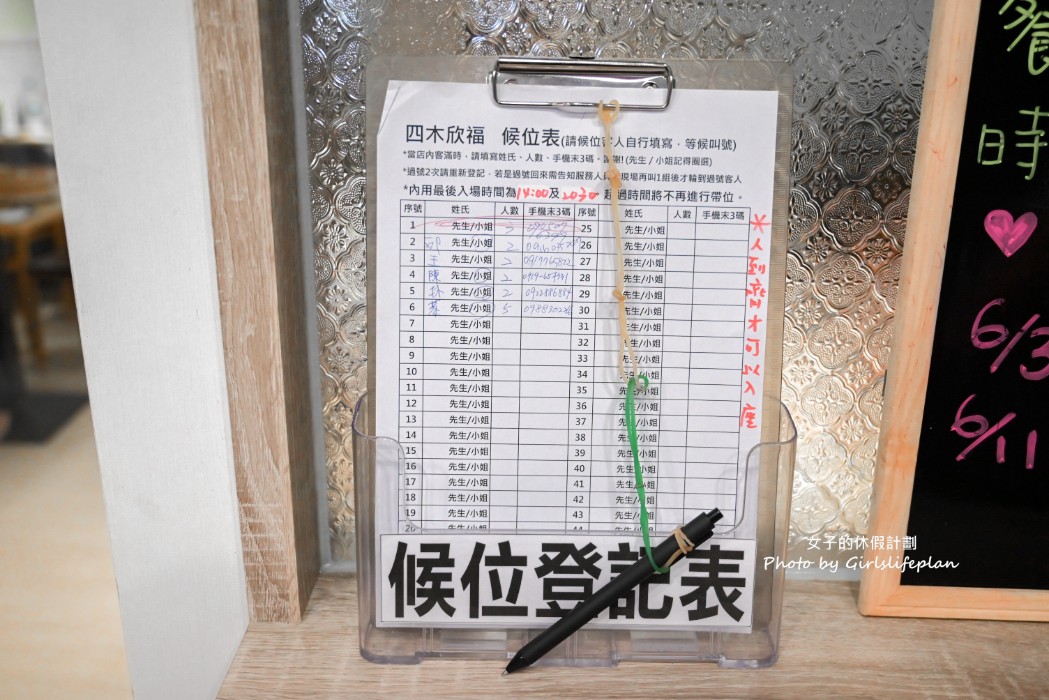 四木欣福 候位表(請候位客人自行填寫，等候叫號)
*當店內客滿時，請填寫姓氏、人數、手機末3碼，謝謝!(先生/小姐記得圈選)
*過號2次請重新登記，若是過號回來需告知服務人員 現場再叫1組後才輪到過號客人
*內用最後入場時間為14:00及2030 超過時間將不再進行帶位。
序號 姓氏 人數 手機末3碼 序號 姓氏 人數 手機末3碼
1 先生/小姐 2 25 先生/小姐
2 先生/小姐 2 26 先生/小姐
3 王 先生/小姐 2 27 先生/小姐
4 陳 先生/小姐 2 28 先生/小姐
5 林 先生/小姐 2 29 先生/小姐
6 先生/小姐 5 30 先生/小姐
7 先生/小姐 31 先生/小姐
8 先生/小姐 32 先生/小姐
9 先生/小姐 33 先生/小姐
10 先生/小姐 34 先生/小姐
11 先生/小姐 35 先生/小姐
12 先生/小姐 36 先生/小姐
13 先生/小姐 37 先生/小姐
14 先生/小姐 38 先生/小姐
15 先生/小姐 39 先生/小姐
16 先生/小姐 40 先生/小姐
17 先生/小姐 41 先生/小姐
18 先生/小姐 42 先生/小姐
19 先生/小姐 43 先生/小姐
20 先生/小姐 44 先生/小姐
*人到齊才可以入座
候位登記表
餐
時
6/3
6/11
女子的休假計劃
Photo by Girlslifeplan